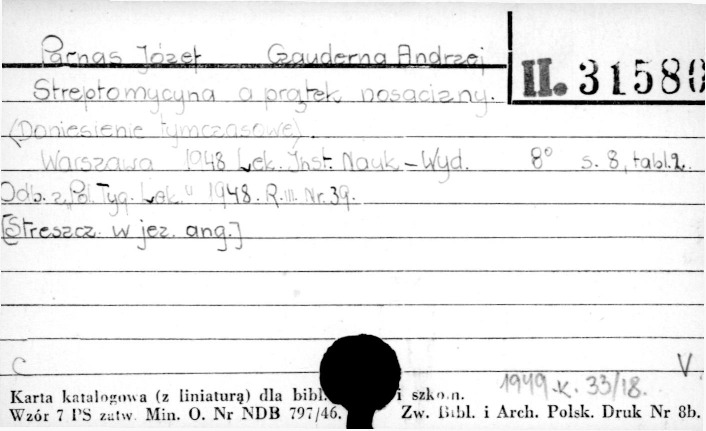 Parnas Józef Czauderna Andrzej
II. 31580
Streptomycyna a prątek nosacizny.
(Doniesienie tymczasowe).
Warszawa 1948 Lek. Inst. Nauk-Wyd. 8° s. 8, tabl. 2.
Odb. z "Pol. Tyg. Lek." 1948. R. III. Nr. 39.
[Streszcz. w jez. ang.]
C V
1949. K. 33/18.
Karta katalogowa (z liniaturą) dla bibl. i szkoln.
Wzór 7 PS zatw. Min. O. Nr NDB 797/46. Zw. Bibl. i Arch. Polsk. Druk Nr 8b.